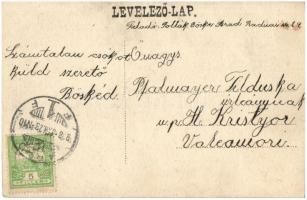 LEVELEZŐ-LAP.
Feladó: Pollák Böske Arad
Számtalan csókot
küld szerető
Böskéd.
Őnagys.
Pfalmayer Tilduska
urleánynak
u. p. H. Kristyor
Valeamori
5